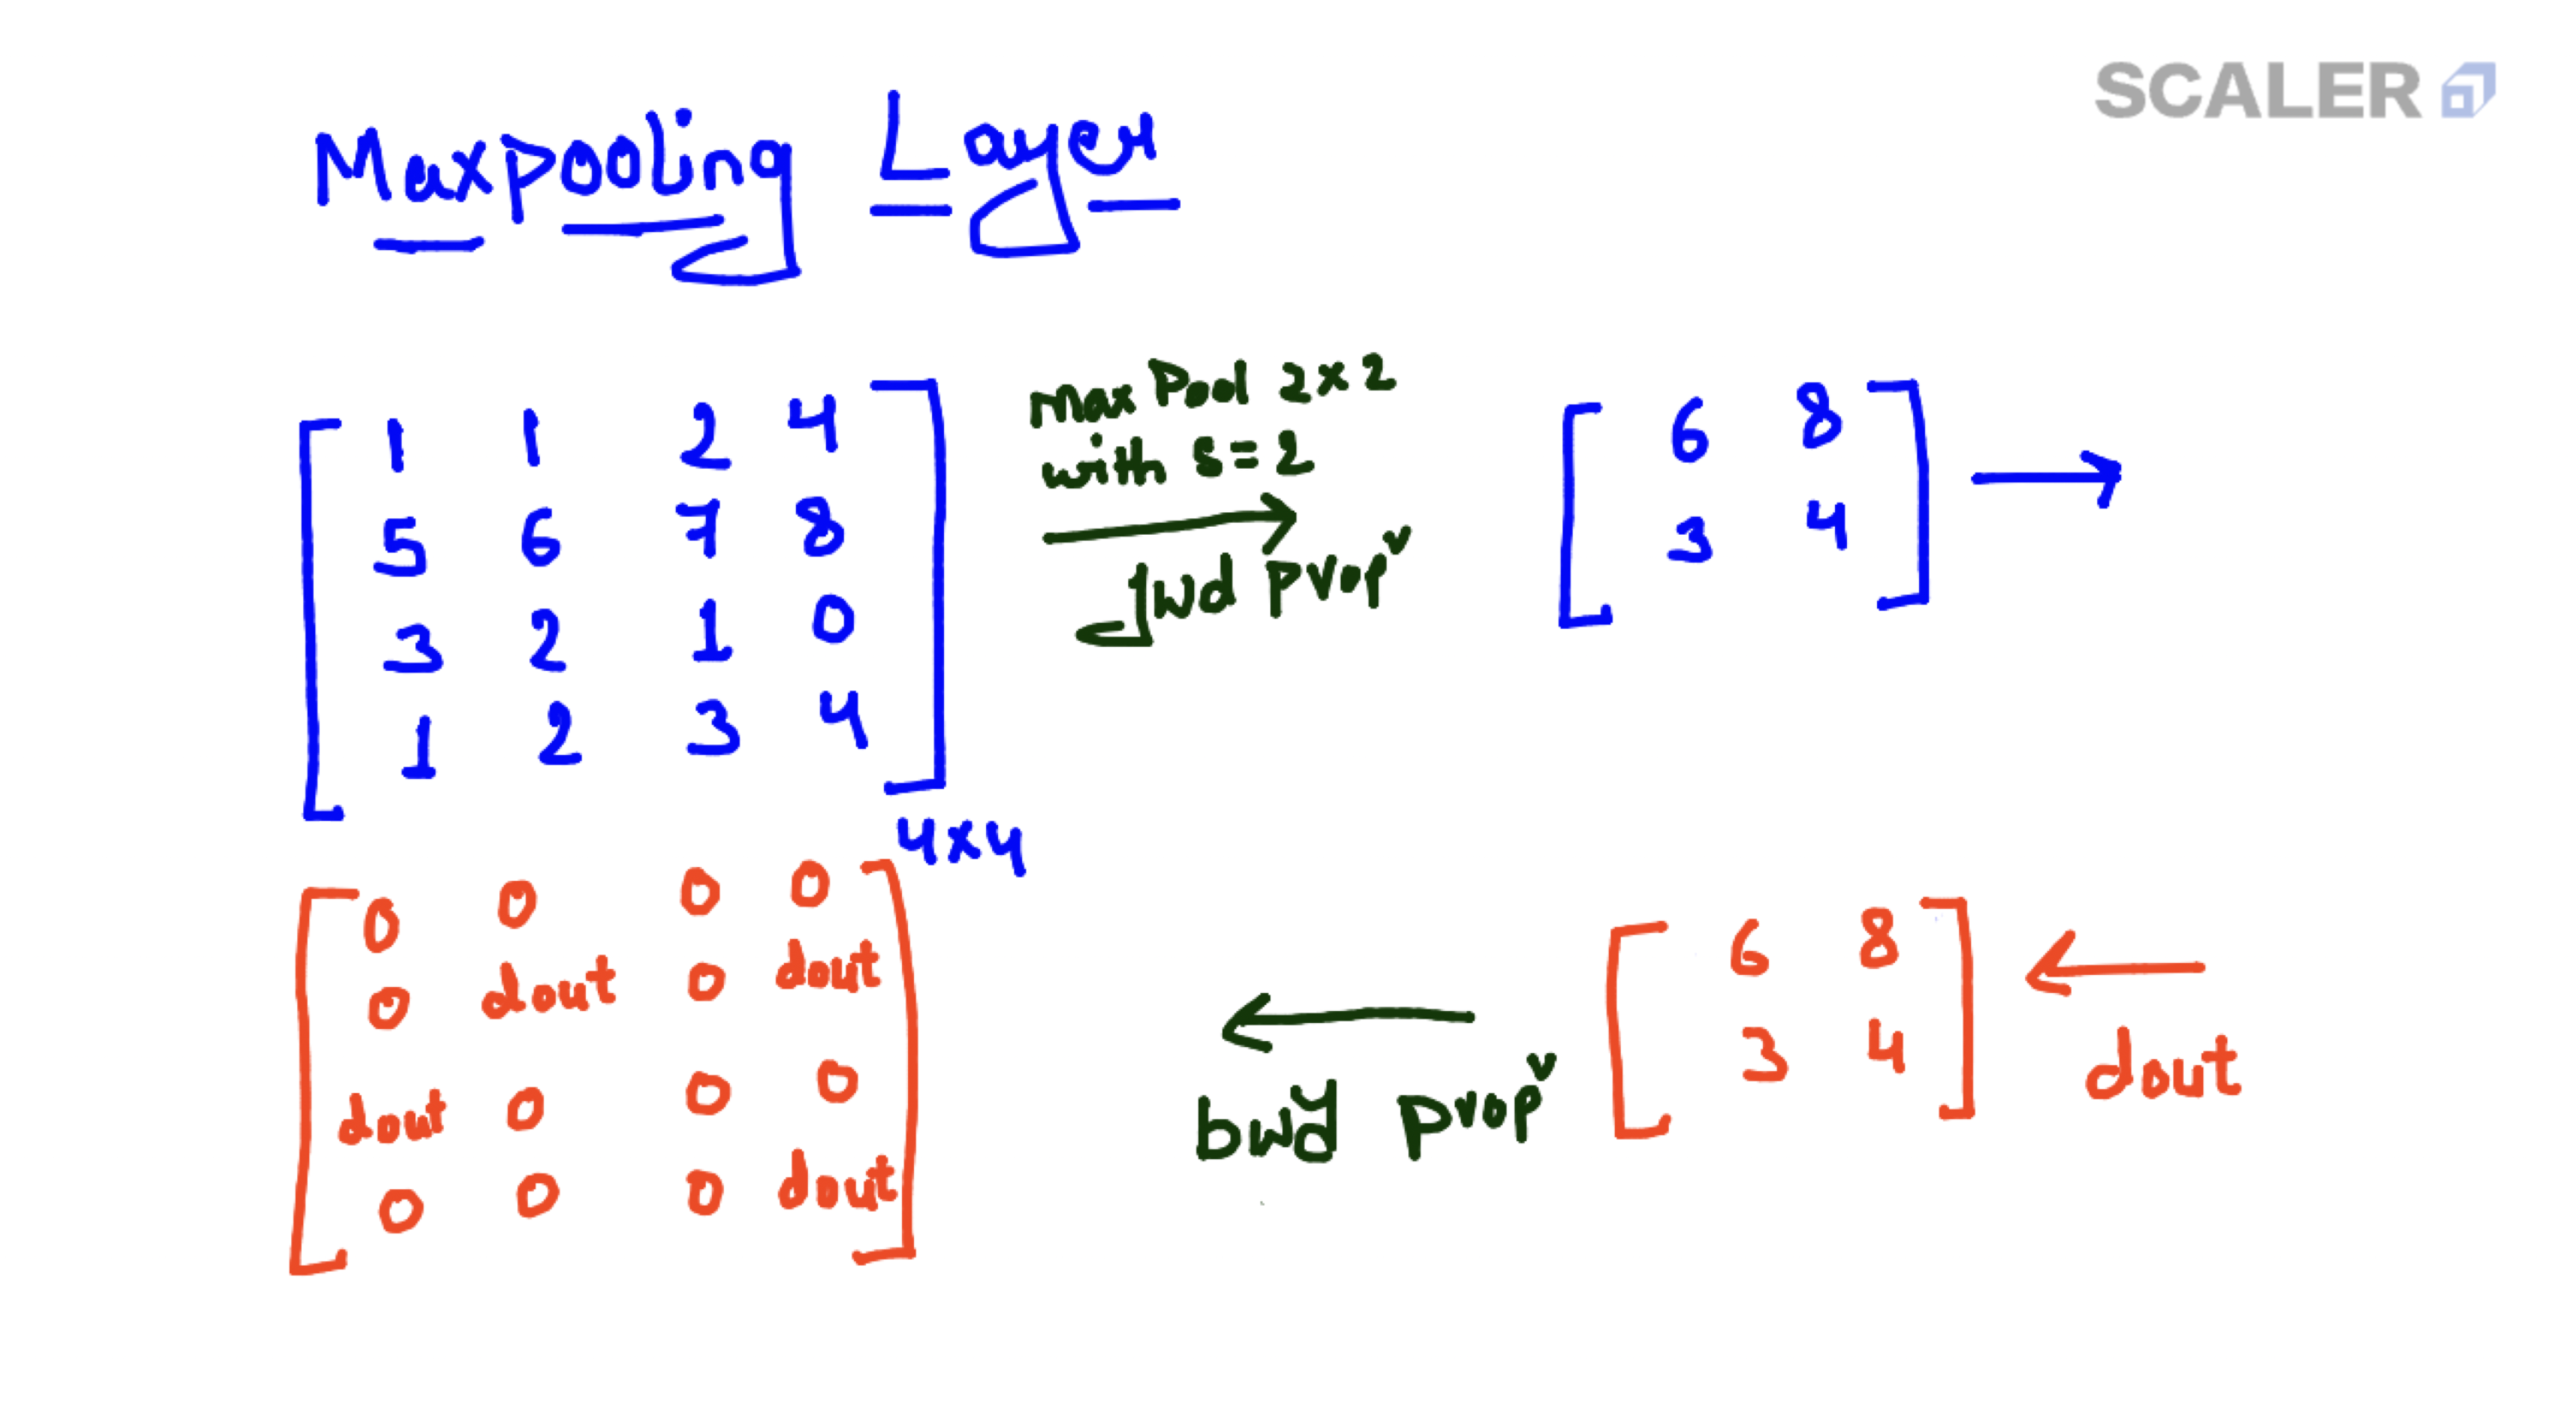 SCALER
Maxpooling Layer
1 1 2 4
5 6 7 8
3 2 1 0
1 2 3 4
4x4
max Pool 2x2
with s=2
fwd prop
6 8
3 4
0 0 0 0
0 dout 0 dout
dout 0 0 0
0 0 0 dout
bwd prop
6 8
3 4
dout